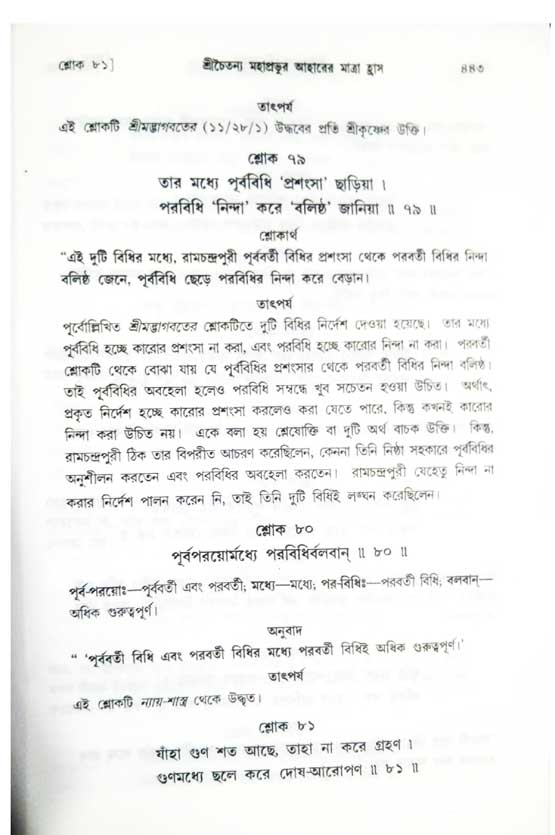 শ্লোক ৮১]
শ্রীচৈতন্য মহাপ্রভুর আহারের মাত্রা হ্রাস
৪৪৩
তাৎপর্য
এই শ্লোকটি শ্রীমদ্ভাগবতের (১১/২৮/১) উদ্ধবের প্রতি শ্রীকৃষ্ণের উক্তি।
শ্লোক ৭৯
তার মধ্যে পূর্ববিধি ‘প্রশংসা’ ছাড়িয়া ।
পরবিধি ‘নিন্দা’ করে ‘বলিষ্ঠ’ জানিয়া ॥ ৭৯ ॥
শ্লোকার্থ
“এই দুটি বিধির মধ্যে, রামচন্দ্রপুরী পূর্ববর্তী বিধির প্রশংসা থেকে পরবর্তী বিধির নিন্দা
বলিষ্ঠ জেনে, পূর্ববিধি ছেড়ে পরবিধির নিন্দা করে বেড়ান।
তাৎপর্য
পূর্বোল্লিখিত শ্রীমদ্ভাগবতের শ্লোকটিতে দুটি বিধির নির্দেশ দেওয়া হয়েছে। তার মধ্যে
পূর্ববিধি হচ্ছে কারোর প্রশংসা না করা, এবং পরবিধি হচ্ছে কারোর নিন্দা না করা। পরবর্তী
শ্লোকটি থেকে বোঝা যায় যে পূর্ববিধির প্রশংসার থেকে পরবর্তী বিধির নিন্দা বলিষ্ঠ।
তাই পূর্ববিধির অবহেলা হলেও পরবিধি সম্বন্ধে খুব সচেতন হওয়া উচিত। অর্থাৎ,
প্রকৃত নির্দেশ হচ্ছে কারোর প্রশংসা করলেও করা যেতে পারে, কিন্তু কখনই কারোর
নিন্দা করা উচিত নয়। একে বলা হয় শ্লেষোক্তি বা দুটি অর্থ বাচক উক্তি। কিন্তু,
রামচন্দ্রপুরী ঠিক তার বিপরীত আচরণ করেছিলেন, কেননা তিনি নিষ্ঠা সহকারে পূর্ববিধির
অনুশীলন করতেন এবং পরবিধির অবহেলা করতেন। রামচন্দ্রপুরী যেহেতু নিন্দা না
করার নির্দেশ পালন করেন নি, তাই তিনি দুটি বিধিই লঙ্ঘন করেছিলেন।
শ্লোক ৮০
পূর্বপরয়োর্মধ্যে পরবিধির্বলবান্ ॥ ৮০ ॥
পূর্ব-পরয়োঃ—পূর্ববর্তী এবং পরবর্তী; মধ্যে—মধ্যে; পর-বিধিঃ—পরবর্তী বিধি; বলবান্—
অধিক গুরুত্বপূর্ণ।
অনুবাদ
“ ‘পূর্ববর্তী বিধি এবং পরবর্তী বিধির মধ্যে পরবর্তী বিধিই অধিক গুরুত্বপূর্ণ।’
তাৎপর্য
এই শ্লোকটি ন্যায়-শাস্ত্র থেকে উদ্ধৃত।
শ্লোক ৮১
যাঁহা গুণ শত আছে, তাহা না করে গ্রহণ ।
গুণমধ্যে ছলে করে দোষ-আরোপণ ॥ ৮১ ॥